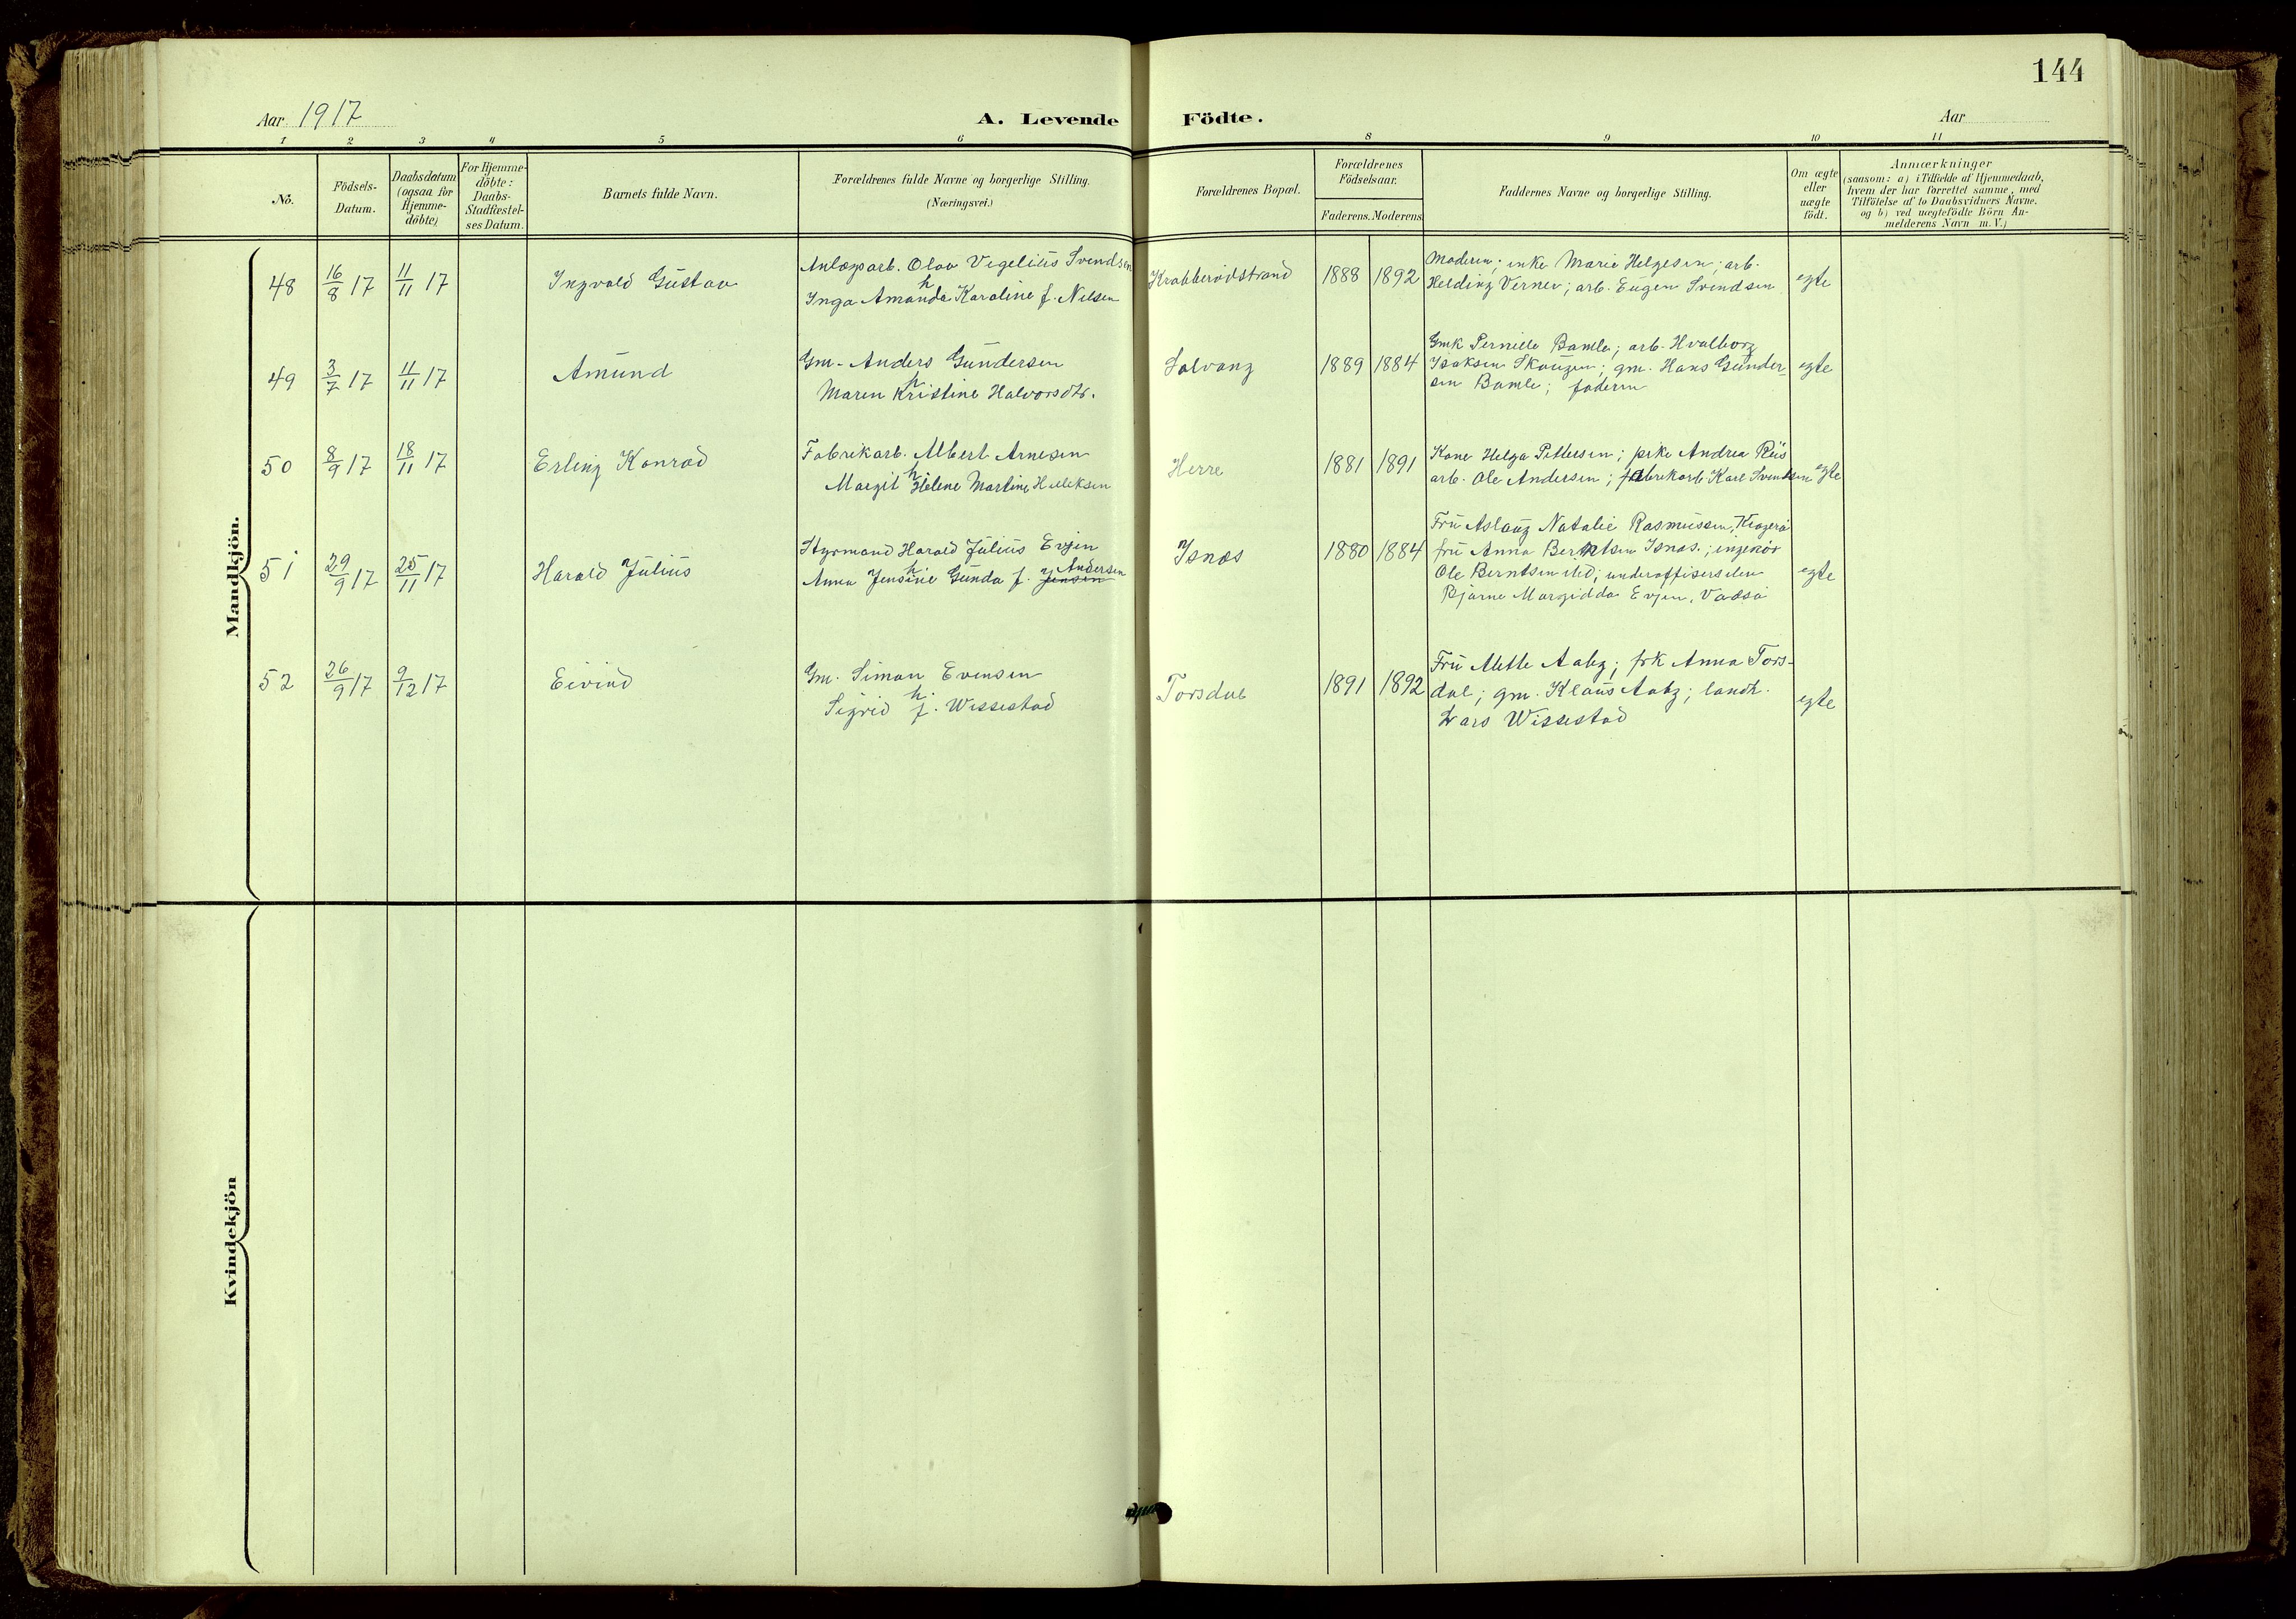 144
Aar 1917 A. Levende Födte. Aar
1 2 3 4 5 6 8 9 10 11
No.
Födsels-
Datum.
Daabsdatum
(ogsaa for
Hjemme-
döbte)
For Hjemme-
döbte:
Daabs-
Stadfæstel-
ses Datum.
Barnets fulde Navn.
Forældrenes fulde Navne og borgerlige Stilling.
(Næringsvei.)
Forældrenes Bopæl.
Forældrenes
Födselsaar.
Faderens. Moderens
Faddernes Navne og borgerlige Stilling.
Om ægte
eller
uægte
födt.
Anmærkninger
(saasom: a) i Tilfælde af Hjemmedaab,
hvem der har forrettet samme, med
Tilföielse af to Daabsvidners Navne.
og b) ved uægtefödte Börn An-
melderens Navn m. V.)
Mandkjön.
48 16/8 17 11/11 17 Ingvald Gustav
Anlægsarb. Olav Vigelius Svendsen
h
Inga Amanda Karoline f. Nilsen
Krabberødstrand 1888 1892
Moderen; enke Marie Helgesen; arb.
Helding Verner; arb. Eugen Svendsen
egte
49 3/7 17 11/11 17 Amund
Gm. Anders Gundersen
h
Maren Kristine Halvorsdtr.
Salvang 1889 1884
Gmk Pernille Bamle; arb. Hvalborg
Isaksen Skaugen; gm. Hans Gunder-
sen Bamle; faderen
egte
50 8/9 17 18/11 17 Erling Konrad
Fabrikarb. Albert Arnesen
h
Margit Helene Martine Hilleksen
Herre 1881 1891
Kone Helga Pettersen; pike Andrea Riis
arb. Ole Andersen; fabrikarb. Karl Svendsen
egte
51 29/9 17 25/11 17 Harald Julius
Styrmand Harald Julius Evjen
h Andersen
Anna Jensine Gunda f. Jensen
Isnes 1880 1884
Fru Aslaug Natalie Rasmussen, Kragerø
fru Anna Berntsen Isnes.; ingeniør
Ole Berntsen sted; underoffiserselev
Bjarne Margidda Evjen, Vadsø
egte
52 26/9 17 9/12 17 Eivind
Gm. Simon Evensen
h
Sigrid f. Wissestad
Torsdal 1891 1892
Fru Mette Aaby; frk Anna Tors-
dal; gm. Klaus Aaby; landh.
Lars Wissestad
egte
Kvindekjön